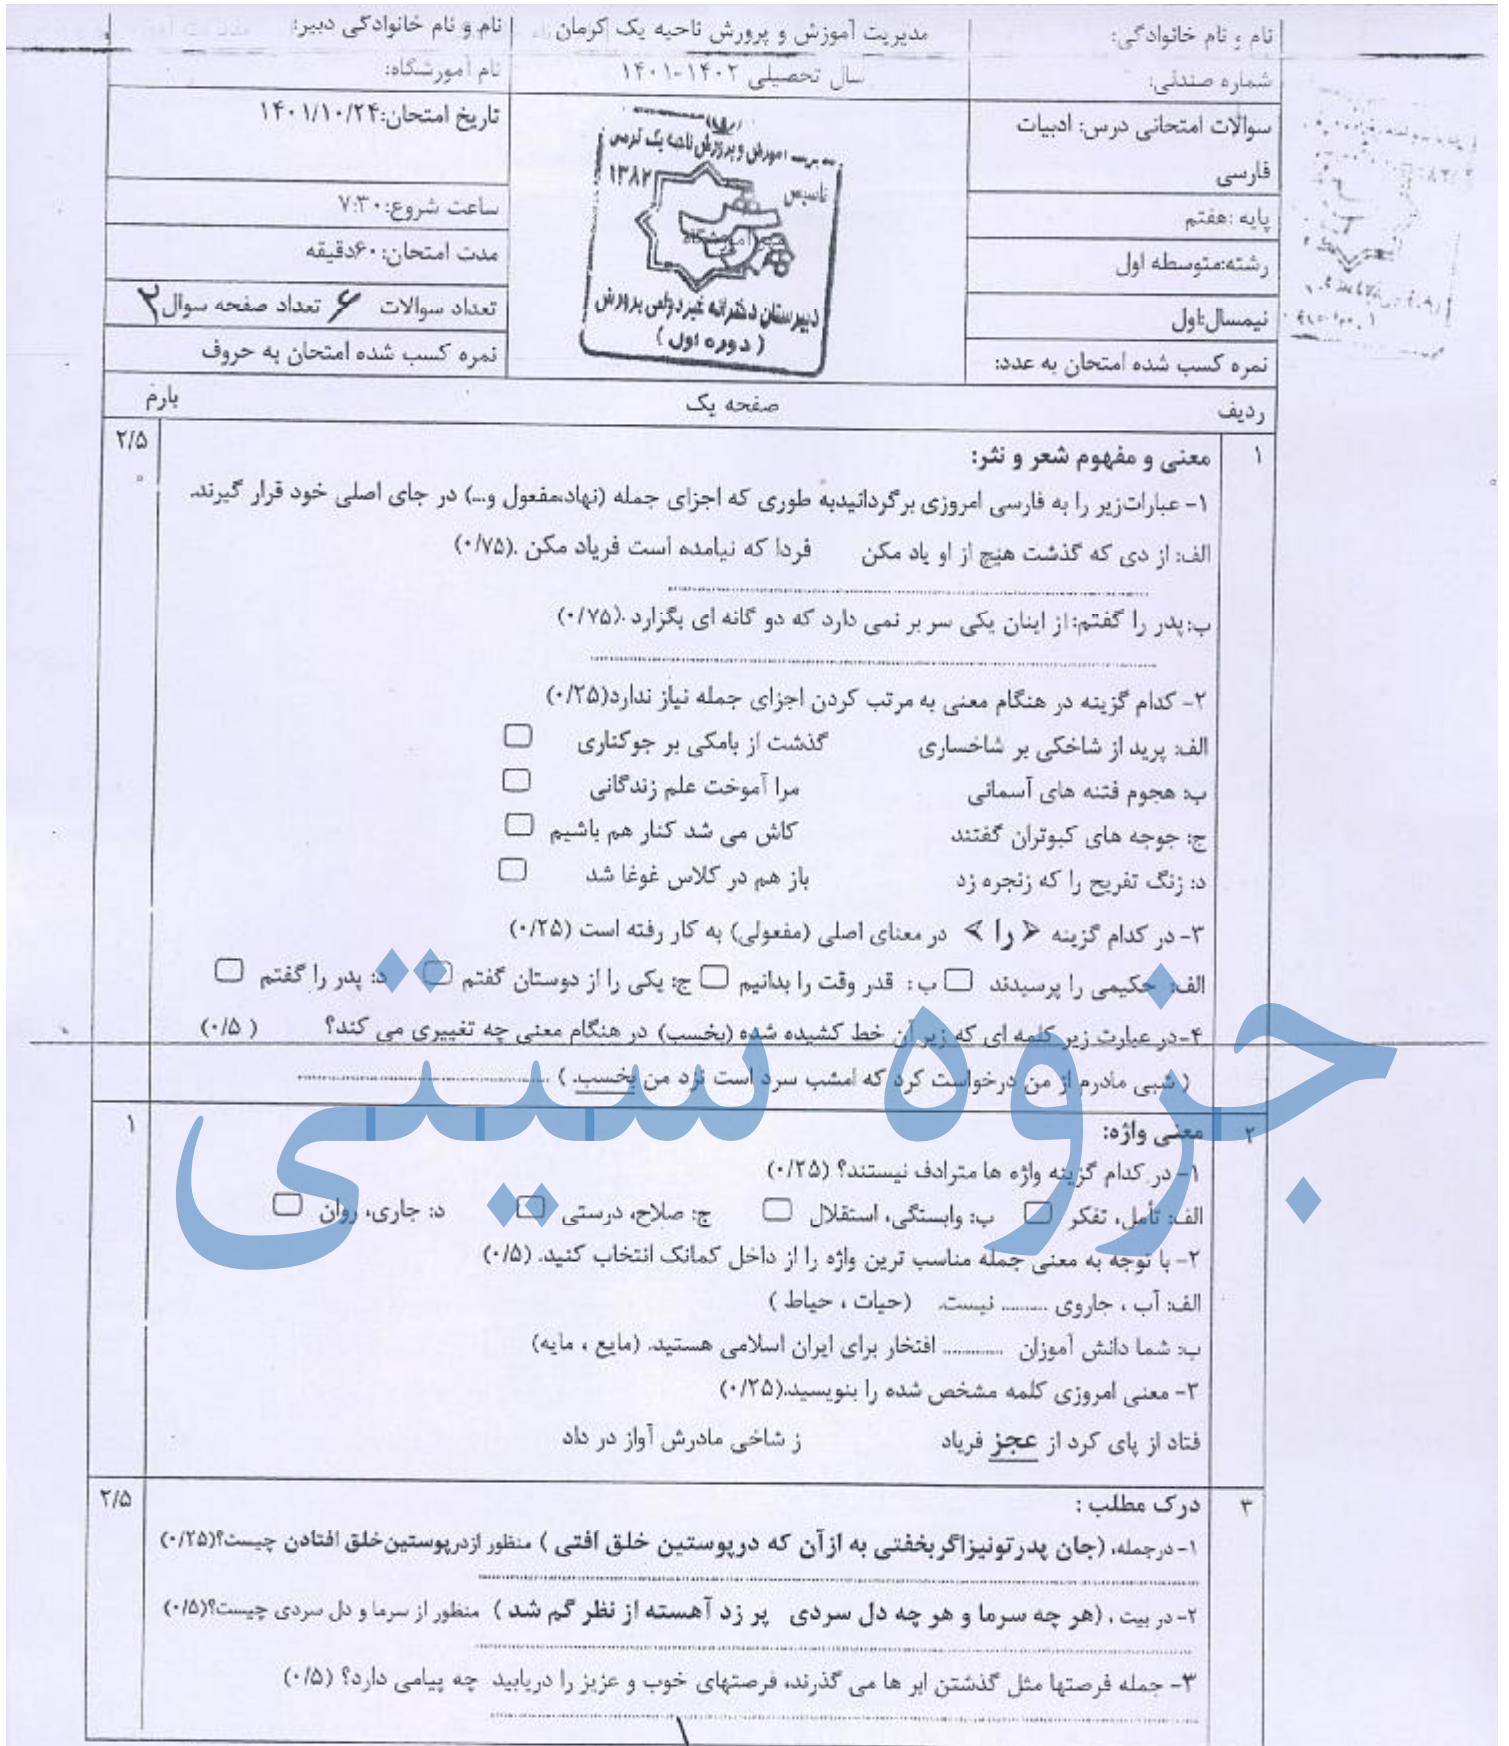 نام و نام خانوادگی:
مدیریت آموزش و پرورش ناحیه یک کرمان
نام و نام خانوادگی دبیر:
شماره صندلی:
سال تحصیلی ۱۴۰۲-۱۴۰۱
نام آموزشگاه:
سوالات امتحانی درس: ادبیات
فارسی
تاریخ امتحان:۱۴۰۱/۱۰/۲۴
پایه :هفتم
ساعت شروع:۷:۳۰
رشته:متوسطه اول
مدت امتحان:۶۰دقیقه
نیمسال:اول
تعداد سوالات ۶ تعداد صفحه سوال ۲
نمره کسب شده امتحان به عدد:
نمره کسب شده امتحان به حروف
مدیریت آموزش و پرورش ناحیه یک
تاسیس ۱۳۸۲
دبیرستان دخترانه غیر دولتی پرورش
( دوره اول )
ردیف صفحه یک بارم
۱ معنی و مفهوم شعر و نثر: ۲/۵
۱- عبارات‌زیر را به فارسی امروزی برگردانیدبه طوری که اجزای جمله (نهاد،مفعول و...) در جای اصلی خود قرار گیرند.
الف: از دی که گذشت هیچ از او یاد مکن فردا که نیامده است فریاد مکن .(۰/۷۵)
ب:پدر را گفتم: از اینان یکی سر بر نمی دارد که دو گانه ای بگزارد .(۰/۷۵)
۲- کدام گزینه در هنگام معنی به مرتب کردن اجزای جمله نیاز ندارد(۰/۲۵)
الف: پرید از شاخکی بر شاخساری گذشت از بامکی بر جوکناری
ب: هجوم فتنه های آسمانی مرا آموخت علم زندگانی
ج: جوجه های کبوتران گفتند کاش می شد کنار هم باشیم
د: زنگ تفریح را که زنجره زد باز هم در کلاس غوغا شد
۳- در کدام گزینه < را > در معنای اصلی (مفعولی) به کار رفته است (۰/۲۵)
الف: حکیمی را پرسیدند ب : قدر وقت را بدانیم ج: یکی را از دوستان گفتم د: پدر را گفتم
۴-در عبارت زیر کلمه ای که زیر آن خط کشیده شده (بخسب) در هنگام معنی چه تغییری می کند؟ ( ۰/۵)
( شبی مادرم از من درخواست کرد که امشب سرد است نزد من بخسب. )
جزوه سیتی
۲ معنی واژه: ۱
۱- در کدام گزینه واژه ها مترادف نیستند؟ (۰/۲۵)
الف: تأمل، تفکر ب: وابستگی، استقلال ج: صلاح، درستی د: جاری، روان
۲- با توجه به معنی جمله مناسب ترین واژه را از داخل کمانک انتخاب کنید. (۰/۵)
الف: آب ، جاروی ......... نیست. (حیات ، حیاط )
ب: شما دانش آموزان ............ افتخار برای ایران اسلامی هستید. (مایع ، مایه)
۳- معنی امروزی کلمه مشخص شده را بنویسید.(۰/۲۵)
فتاد از پای کرد از عجز فریاد ز شاخی مادرش آواز در داد
۳ درک مطلب : ۲/۵
۱- درجمله، (جان پدرتونیزاگربخفتی به ازآن که درپوستین خلق افتی ) منظور ازدرپوستین‌خلق افتادن چیست؟(۰/۲۵)
۲- در بیت ، (هر چه سرما و هر چه دل سردی پر زد آهسته از نظر گم شد ) منظور از سرما و دل سردی چیست؟(۰/۵)
۳- جمله فرصتها مثل گذشتن ابر ها می گذرند، فرصتهای خوب و عزیز را دریابید چه پیامی دارد؟ (۰/۵)
۱